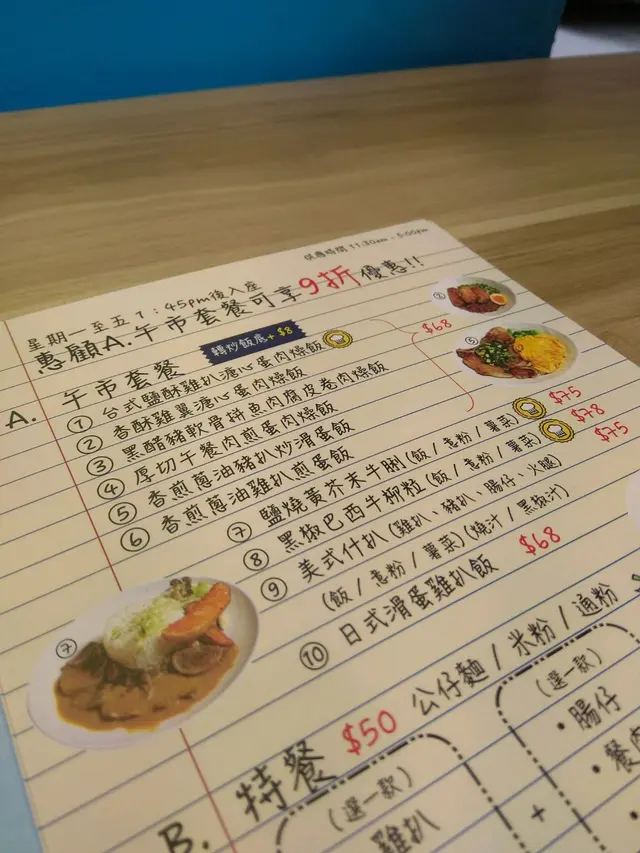 供應時間 11:30am - 5:00pm
星期一至五 1:45pm後入座
惠顧A.午市套餐可享9折優惠!!
A. 午市套餐
轉炒飯底+$8
① 台式鹽酥雞扒溏心蛋肉燥飯
② 香酥雞翼溏心蛋肉燥飯
③ 黑醋豬軟骨拼東肉腐皮卷肉燥飯
④ 厚切午餐肉煎蛋肉燥飯
⑤ 香煎蔥油豬扒炒滑蛋飯
⑥ 香煎蔥油雞扒煎蛋飯
$68
⑤
⑦ 鹽燒黃芥末牛脷(飯/意粉/薯菜) $75
⑧ 黑椒巴西牛柳粒(飯/意粉/薯菜) $78
⑨ 美式什扒(雞扒、豬扒、腸仔、火腿) $75
(飯/意粉/薯菜)(燒汁/黑椒汁)
⑩ 日式滑蛋雞扒飯 $68
⑦
B. 特餐 $50 公仔麵/米粉/通粉
(選一款)
雞扒
+
(選一款)
•腸仔
•餐肉